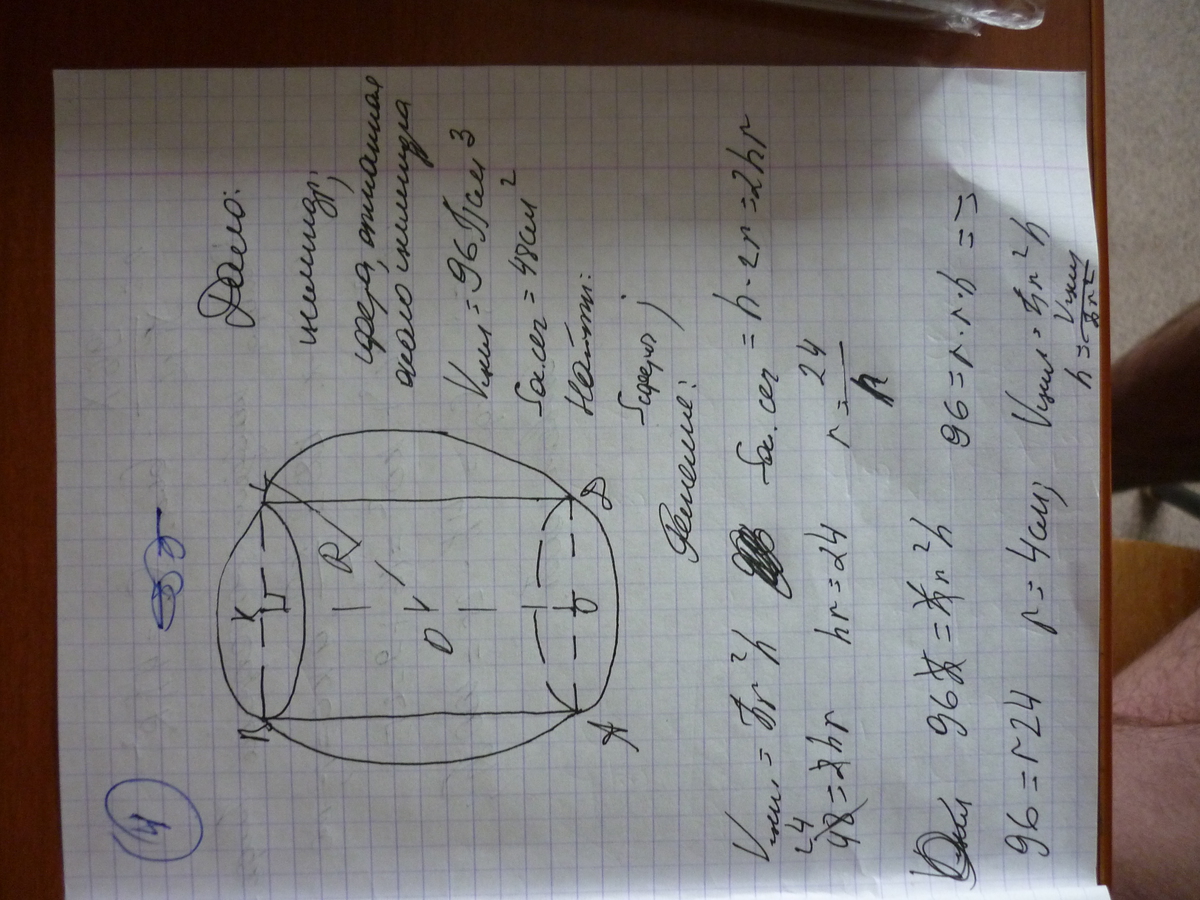 14
Дано:
цилиндр,
сфера, описанная
около цилиндра
Vцил = 96πсм³
Sо.сеч = 48см²
Найти:
Sсферы;
B K
R
O
A D
Решение:
Vцил = πr²h Sо.сеч = h·2r = 2hr
24
48 = 2hr hr = 24 r = 24/h
96π = πr²h 96 = r·r·h =>
96 = r24 r = 4см; Vцил = πr²h
h = Vцил/πr²